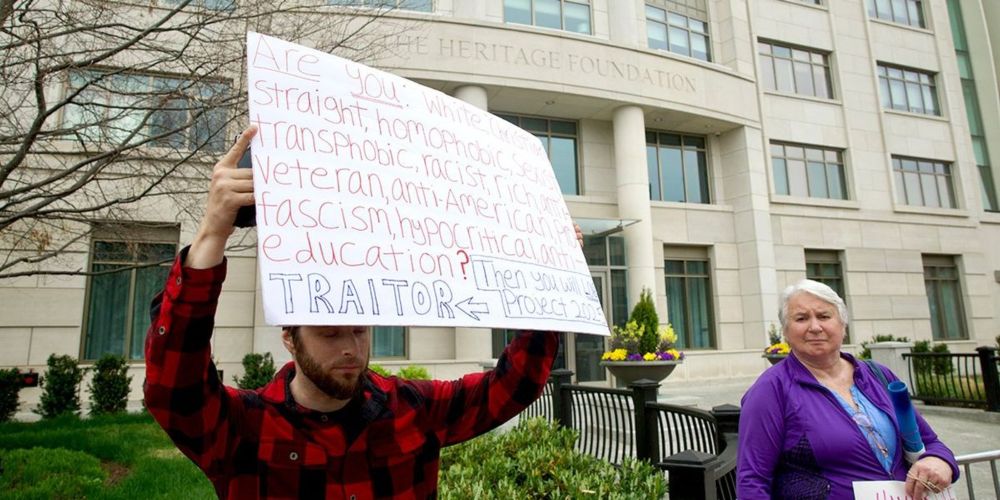 THE HERITAGE FOUNDATION
Are you: White, Christian,
straight, homophobic, sexist,
transphobic, racist, rich, anti-
Veteran, anti-American, pro-
fascism, hypocritical, anti-
education?
Then you will
TRAITOR ← Project 2025